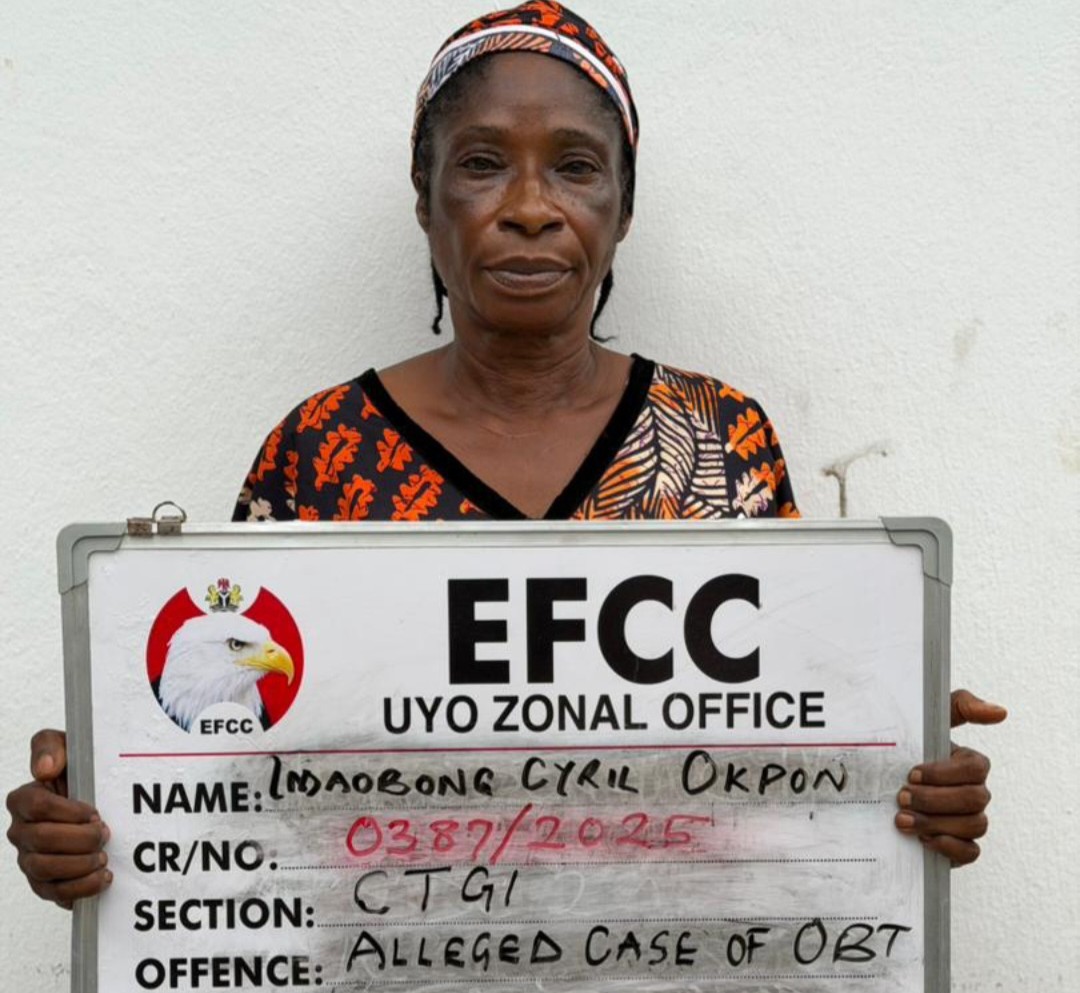 EFCC
UYO ZONAL OFFICE
EFCC
NAME: IMAOBONG CYRIL OKPON
CR/NO. 0387/2025
SECTION: CTGI
OFFENCE: ALLEGED CASE OF OBT